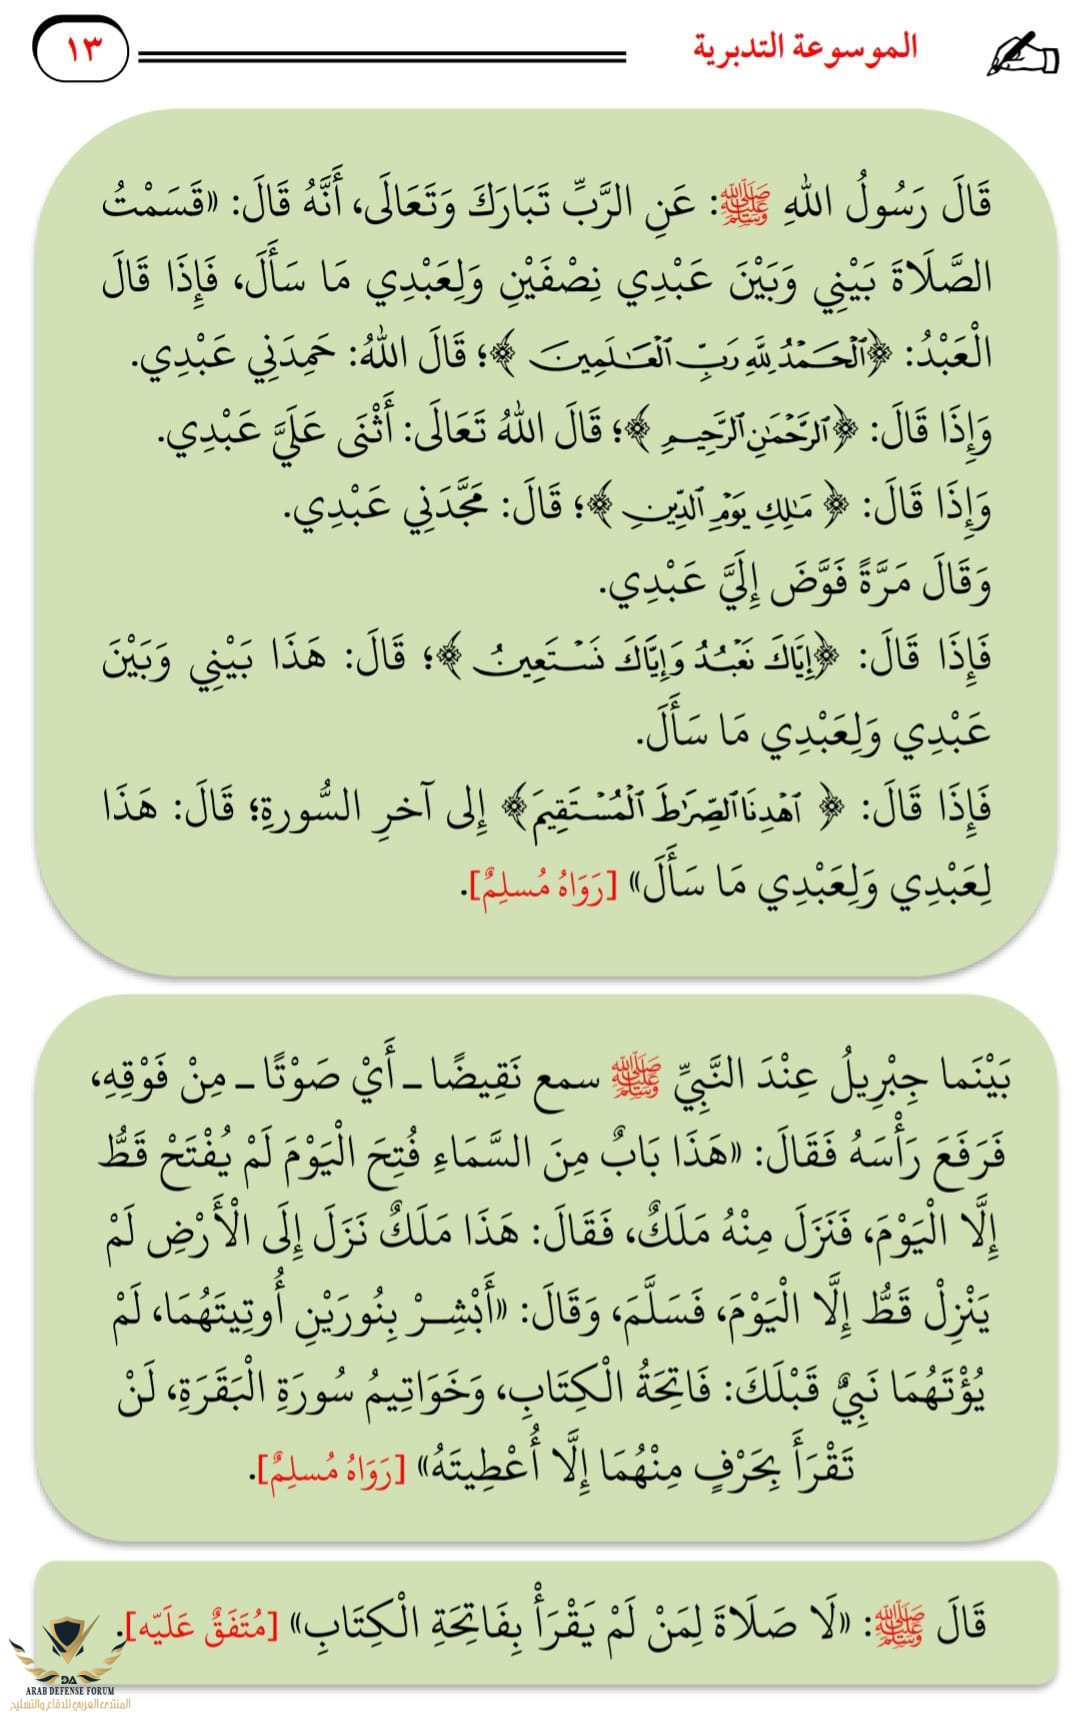 الموسوعة التدبرية
١٣
قَالَ رَسُولُ اللهِ ﷺ: عَنِ الرَّبِّ تَبَارَكَ وَتَعَالَى، أَنَّهُ قَالَ: «قَسَمْتُ
الصَّلَاةَ بَيْنِي وَبَيْنَ عَبْدِي نِصْفَيْنِ وَلِعَبْدِي مَا سَأَلَ، فَإِذَا قَالَ
الْعَبْدُ: ﴿ٱلْحَمْدُ لِلَّهِ رَبِّ ٱلْعَٰلَمِينَ﴾؛ قَالَ اللهُ: حَمِدَنِي عَبْدِي.
وَإِذَا قَالَ: ﴿ٱلرَّحْمَٰنِ ٱلرَّحِيمِ﴾؛ قَالَ اللهُ تَعَالَى: أَثْنَى عَلَيَّ عَبْدِي.
وَإِذَا قَالَ: ﴿مَٰلِكِ يَوْمِ ٱلدِّينِ﴾؛ قَالَ: مَجَّدَنِي عَبْدِي.
وَقَالَ مَرَّةً فَوَّضَ إِلَيَّ عَبْدِي.
فَإِذَا قَالَ: ﴿إِيَّاكَ نَعْبُدُ وَإِيَّاكَ نَسْتَعِينُ﴾؛ قَالَ: هَذَا بَيْنِي وَبَيْنَ
عَبْدِي وَلِعَبْدِي مَا سَأَلَ.
فَإِذَا قَالَ: ﴿ٱهْدِنَا ٱلصِّرَٰطَ ٱلْمُسْتَقِيمَ﴾ إِلى آخرِ السُّورةِ؛ قَالَ: هَذَا
لِعَبْدِي وَلِعَبْدِي مَا سَأَلَ» [رَوَاهُ مُسلِمٌ].
بَيْنَما جِبْرِيلُ عِنْدَ النَّبِيِّ ﷺ سمع نَقِيضًا ـ أَيْ صَوْتًا ـ مِنْ فَوْقِهِ،
فَرَفَعَ رَأْسَهُ فَقَالَ: «هَذَا بَابٌ مِنَ السَّمَاءِ فُتِحَ الْيَوْمَ لَمْ يُفْتَحْ قَطُّ
إِلَّا الْيَوْمَ، فَنَزَلَ مِنْهُ مَلَكٌ، فَقَالَ: هَذَا مَلَكٌ نَزَلَ إِلَى الْأَرْضِ لَمْ
يَنْزِلْ قَطُّ إِلَّا الْيَوْمَ، فَسَلَّمَ، وَقَالَ: «أَبْشِرْ بِنُورَيْنِ أُوتِيتَهُمَا، لَمْ
يُؤْتَهُمَا نَبِيٌّ قَبْلَكَ: فَاتِحَةُ الْكِتَابِ، وَخَوَاتِيمُ سُورَةِ الْبَقَرَةِ، لَنْ
تَقْرَأَ بِحَرْفٍ مِنْهُمَا إِلَّا أُعْطِيتَهُ» [رَوَاهُ مُسلِمٌ].
قَالَ ﷺ: «لَا صَلَاةَ لِمَنْ لَمْ يَقْرَأْ بِفَاتِحَةِ الْكِتَابِ» [مُتَفَقٌ عَلَيّه].
DA
ARAB DEFENSE FORUM
المنتدى العربي للدفاع والتسليح